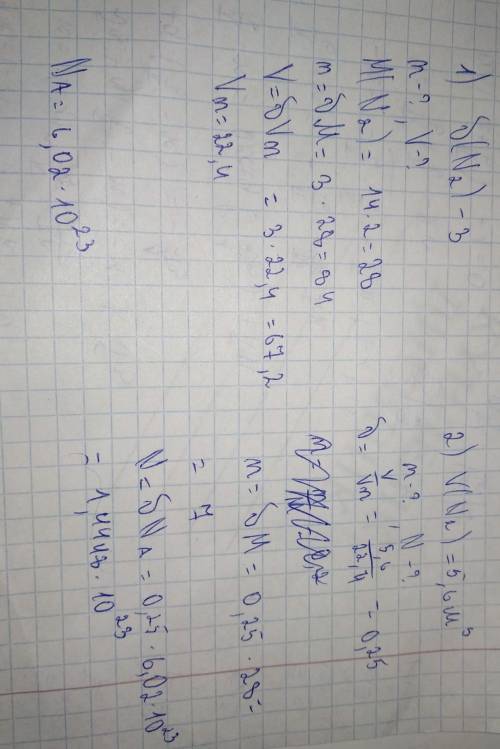 1) δ(N₂) - 3
m-? , V-?
M(N₂) = 14·2=28
m=δM= 3·28=84
V=δVm = 3·22,4 =67,2
Vm=22,4
NA= 6,02·10²³
2) V(N₂)=5,6 м³
m-? N-?
δ= V/Vm = 5,6/22,4 = 0,25
m= δM = 0,25 · 28=
= 7
N=δNA = 0,25·6,02·10²³
= 1,4448·10²³